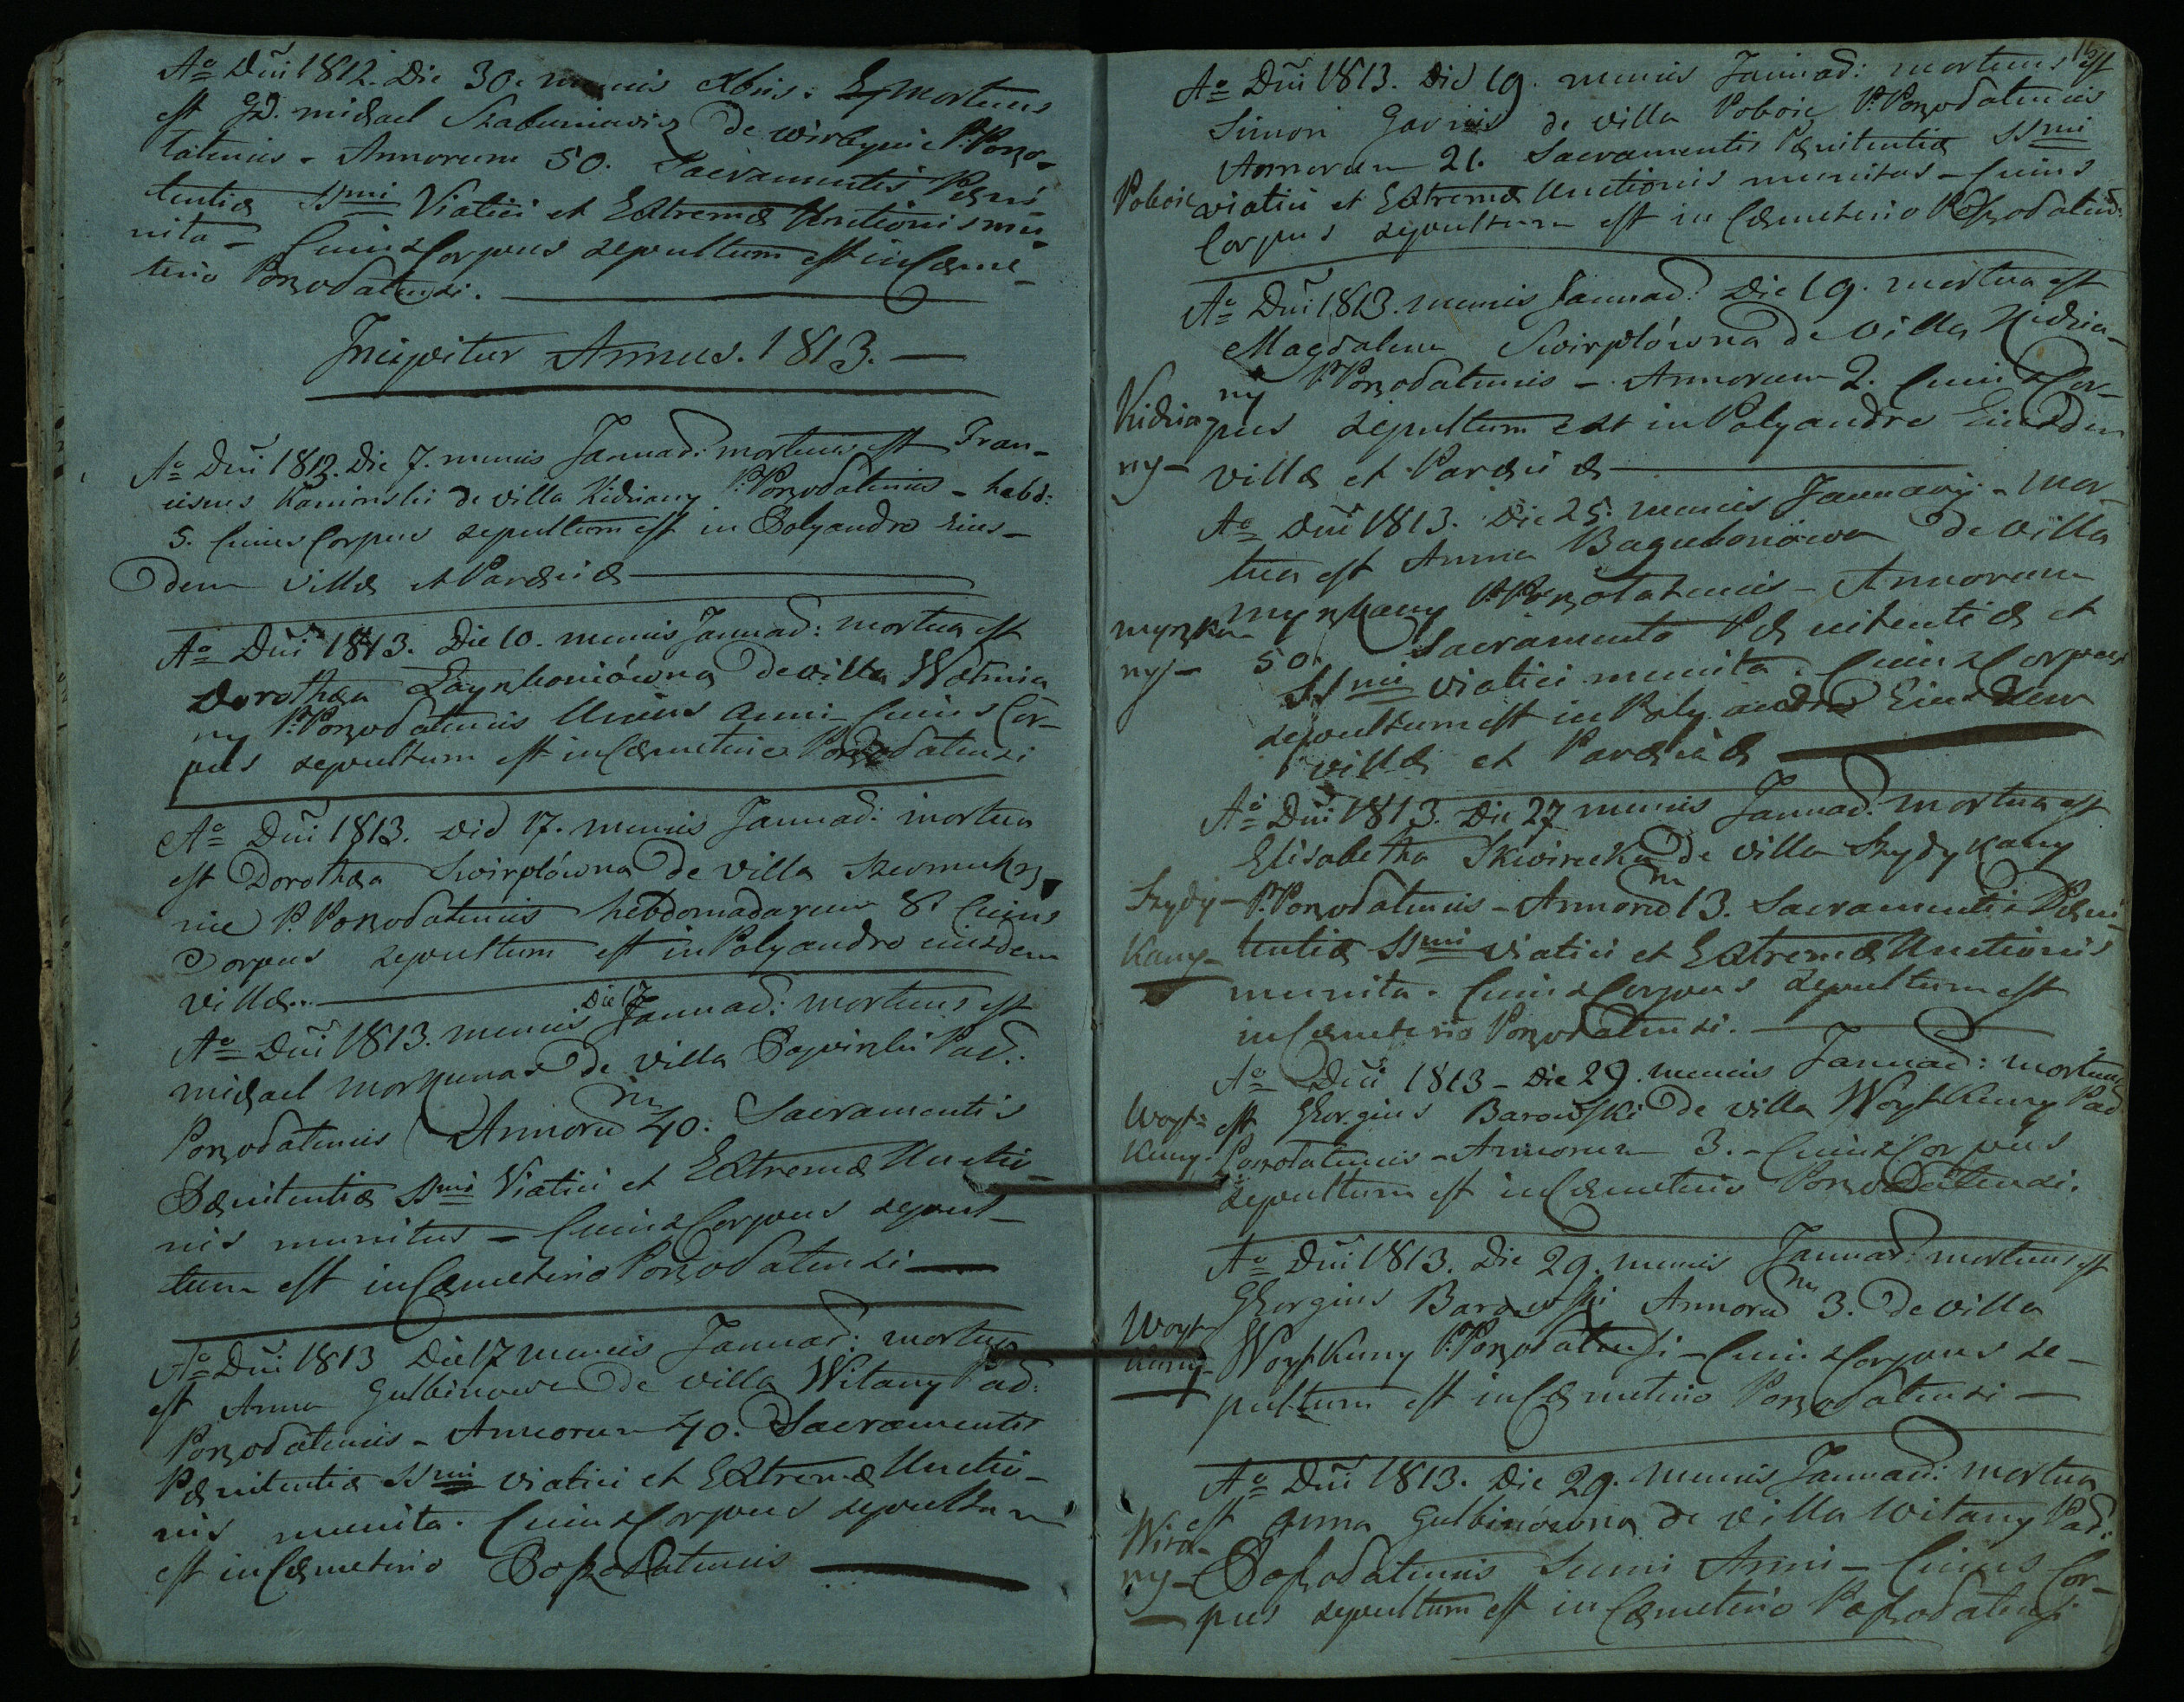 Ao Dni 1812. Die 30. mensis Xbris: mortuus
est GD. Michael Szabuniewicz de Wirbyni P. Poszo-
tatensis - Annorum 50. Sacramentis Pæni-
tentiæ SSmi Viatici et Extremæ Unctionis mu-
nita - Cuius Corpus sepultum est in Cæme-
terio Poszodatensi.
Incipitur Annus. 1813.
Ao Dni 1813. Die 7. mensis Januar: mortuus est Fran-
ciscus Kaminski de villa Kidziany P. Poszodatensis - hebd:
5. Cuius Corpus sepultum est in Polyandro Eius-
dem Villæ et Paræciæ
Ao Dni 1813. Die 10. mensis Januar: mortua est
Dorothæa de villa
ny P. Poszodatensis Unius anni - Cuius Cor-
pus sepultum est in Cæmeterio Poszodatensi
Ao Dni 1813. Die 17. mensis Januar: mortua
est Dorothæa Swirplówna de villa
nie P. Poszodatensis hebdomadarum 8. Cuius
Corpus sepultum est in Polyandro eiusdem
villæ..
Ao Dni 1813. mensis Die 17 Januar: mortuus est
Michael Morkunas de villa Popirzki Par:
Poszodatensis Annoru m 40: Sacramentis
Pænitentiæ SSmi Viatici et Extremæ Unctio-
nis munitus - Cuius Corpus sepul-
tum est in Cæmeterio Poszodatensi
Ao Dni 1813 Die 17 mensis Januar: mortua
est Anna Gulbinowa de villa Witany Par:
Poszodatensis - Annorum 40. Sacramentis
Pænitentiæ SSmi viatici et Extremæ Unctio-
nis munita. Cuius Corpus sepultum
est in Cæmeterio Poszodatensis
Ao Dni 1813. Die 19. mensis Januar: mortuus est
Simon de villa Poboie P. Poszodatensis
Annorum 21. Sacramentis Pænitentiæ SSmi
Poboie
viatici et Extremæ Unctionis munitus - Cuius
Corpus sepultum est in Cæmeterio Poszodaten:
Ao Dni 1813. mensis Januar: Die 19. mortua est
Magdalena Swirplówna de villa Kidzia-
ny P. Poszodatensis - Annorum 2. Cuius Cor-
Kidzia
pus sepultum est in Polyandro Eiusdem
ny-
villæ et Paræciæ
Ao Dni 1813. Die 25. mensis Januarij - mor-
tua est Anna de villa
P. Poszotatensis - Annorum
ny-
50. Sacramento Pænitentiæ et
SSmi viatici munita. Cuius Corpus
sepultum est in Polyandro Eiusdem
villæ et Paræciæ
Ao Dni 1813. Die 27 mensis Januar: mortua est
Elisabetha Skwirecka de villa Szydykany
Szydy-
P. Poszodatensis - Annoru m 13. Sacramentis Pæni-
kany-
tentiæ SSmi viatici et Extremæ Unctionis
munita. Cuius Corpus sepultum est
in Cæmeterio Poszodatensi.
Ao Dni 1813 - Die 29. mensis Januar: mortuus
Woyt-
est Gheorgius Barowski de villa Woytkuny Par
kuny-
Poszodatensis - Annorum 3. - Cuius Corpus
sepultum est in Cæmeterio Poszodatensi.
Ao Dni 1813. Die 29. mensis Januar: mortuus est
Gheorgius Barowski Annoru m 3. de villa
Woyt-
kuny-
Woytkuny P. Poszodatensi - Cuius Corpus se-
pultum est in Cæmeterio Poszodatensi -
Ao Dni 1813. Die 29. mensis Januar: mortua
est Anna Gulbinówna de villa Witany Par:
Wita-
ny-
Poszodatensis Semi Anni - Cuius Cor-
pus sepultum est in Cæmeterio Poszodatensi